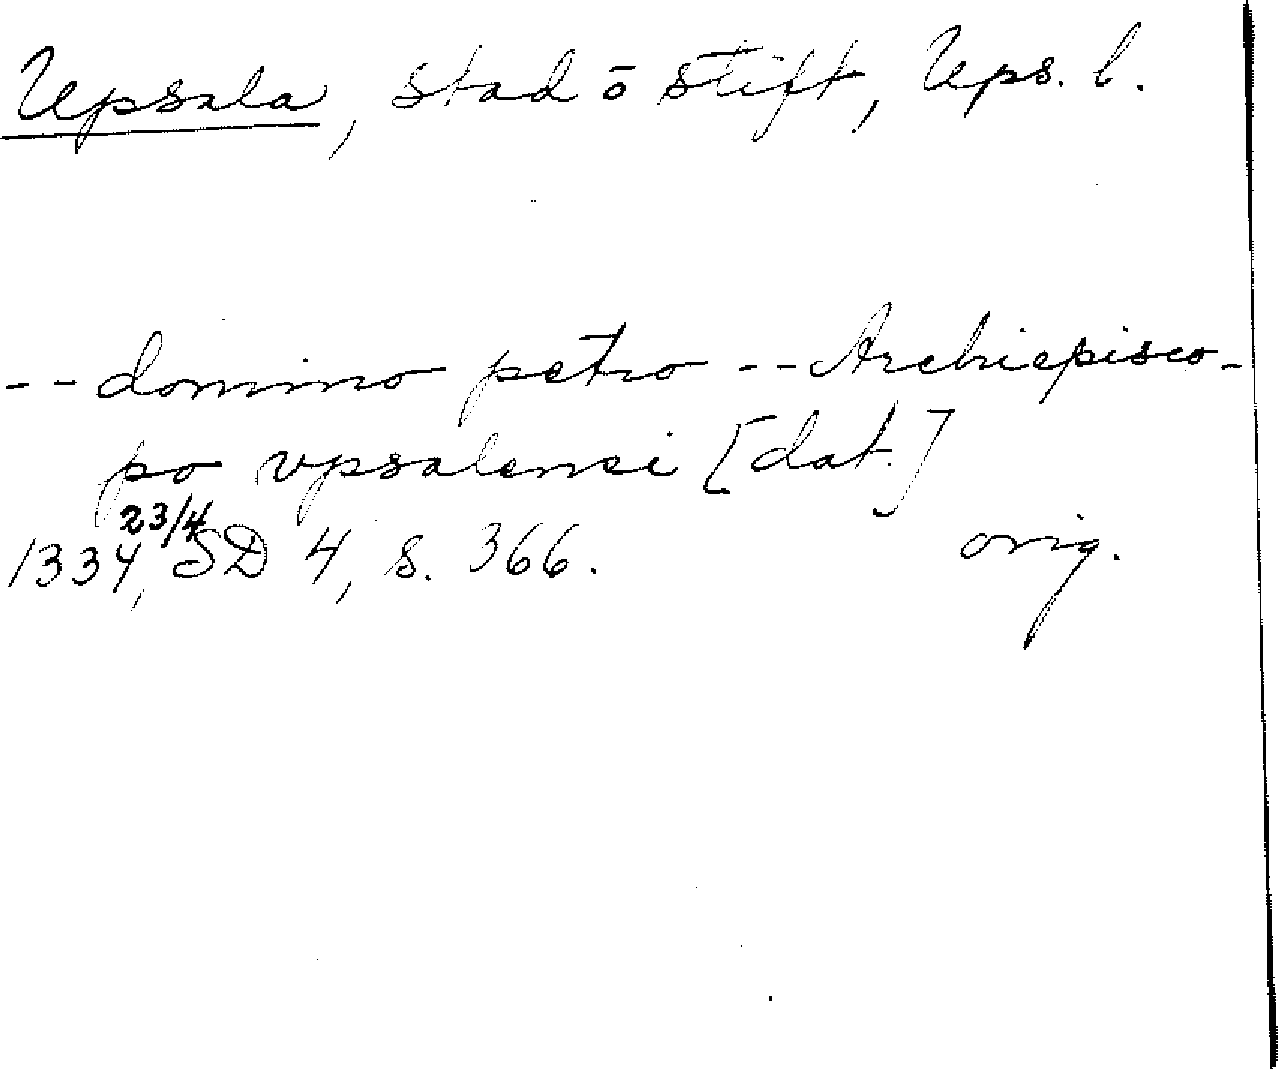 Upsala, stad ō stift, Ups. l.
-- domino petro -- Archiepisco-
po vpsalensi [dat.]
23/4
1334, SD 4, s. 366. orig.